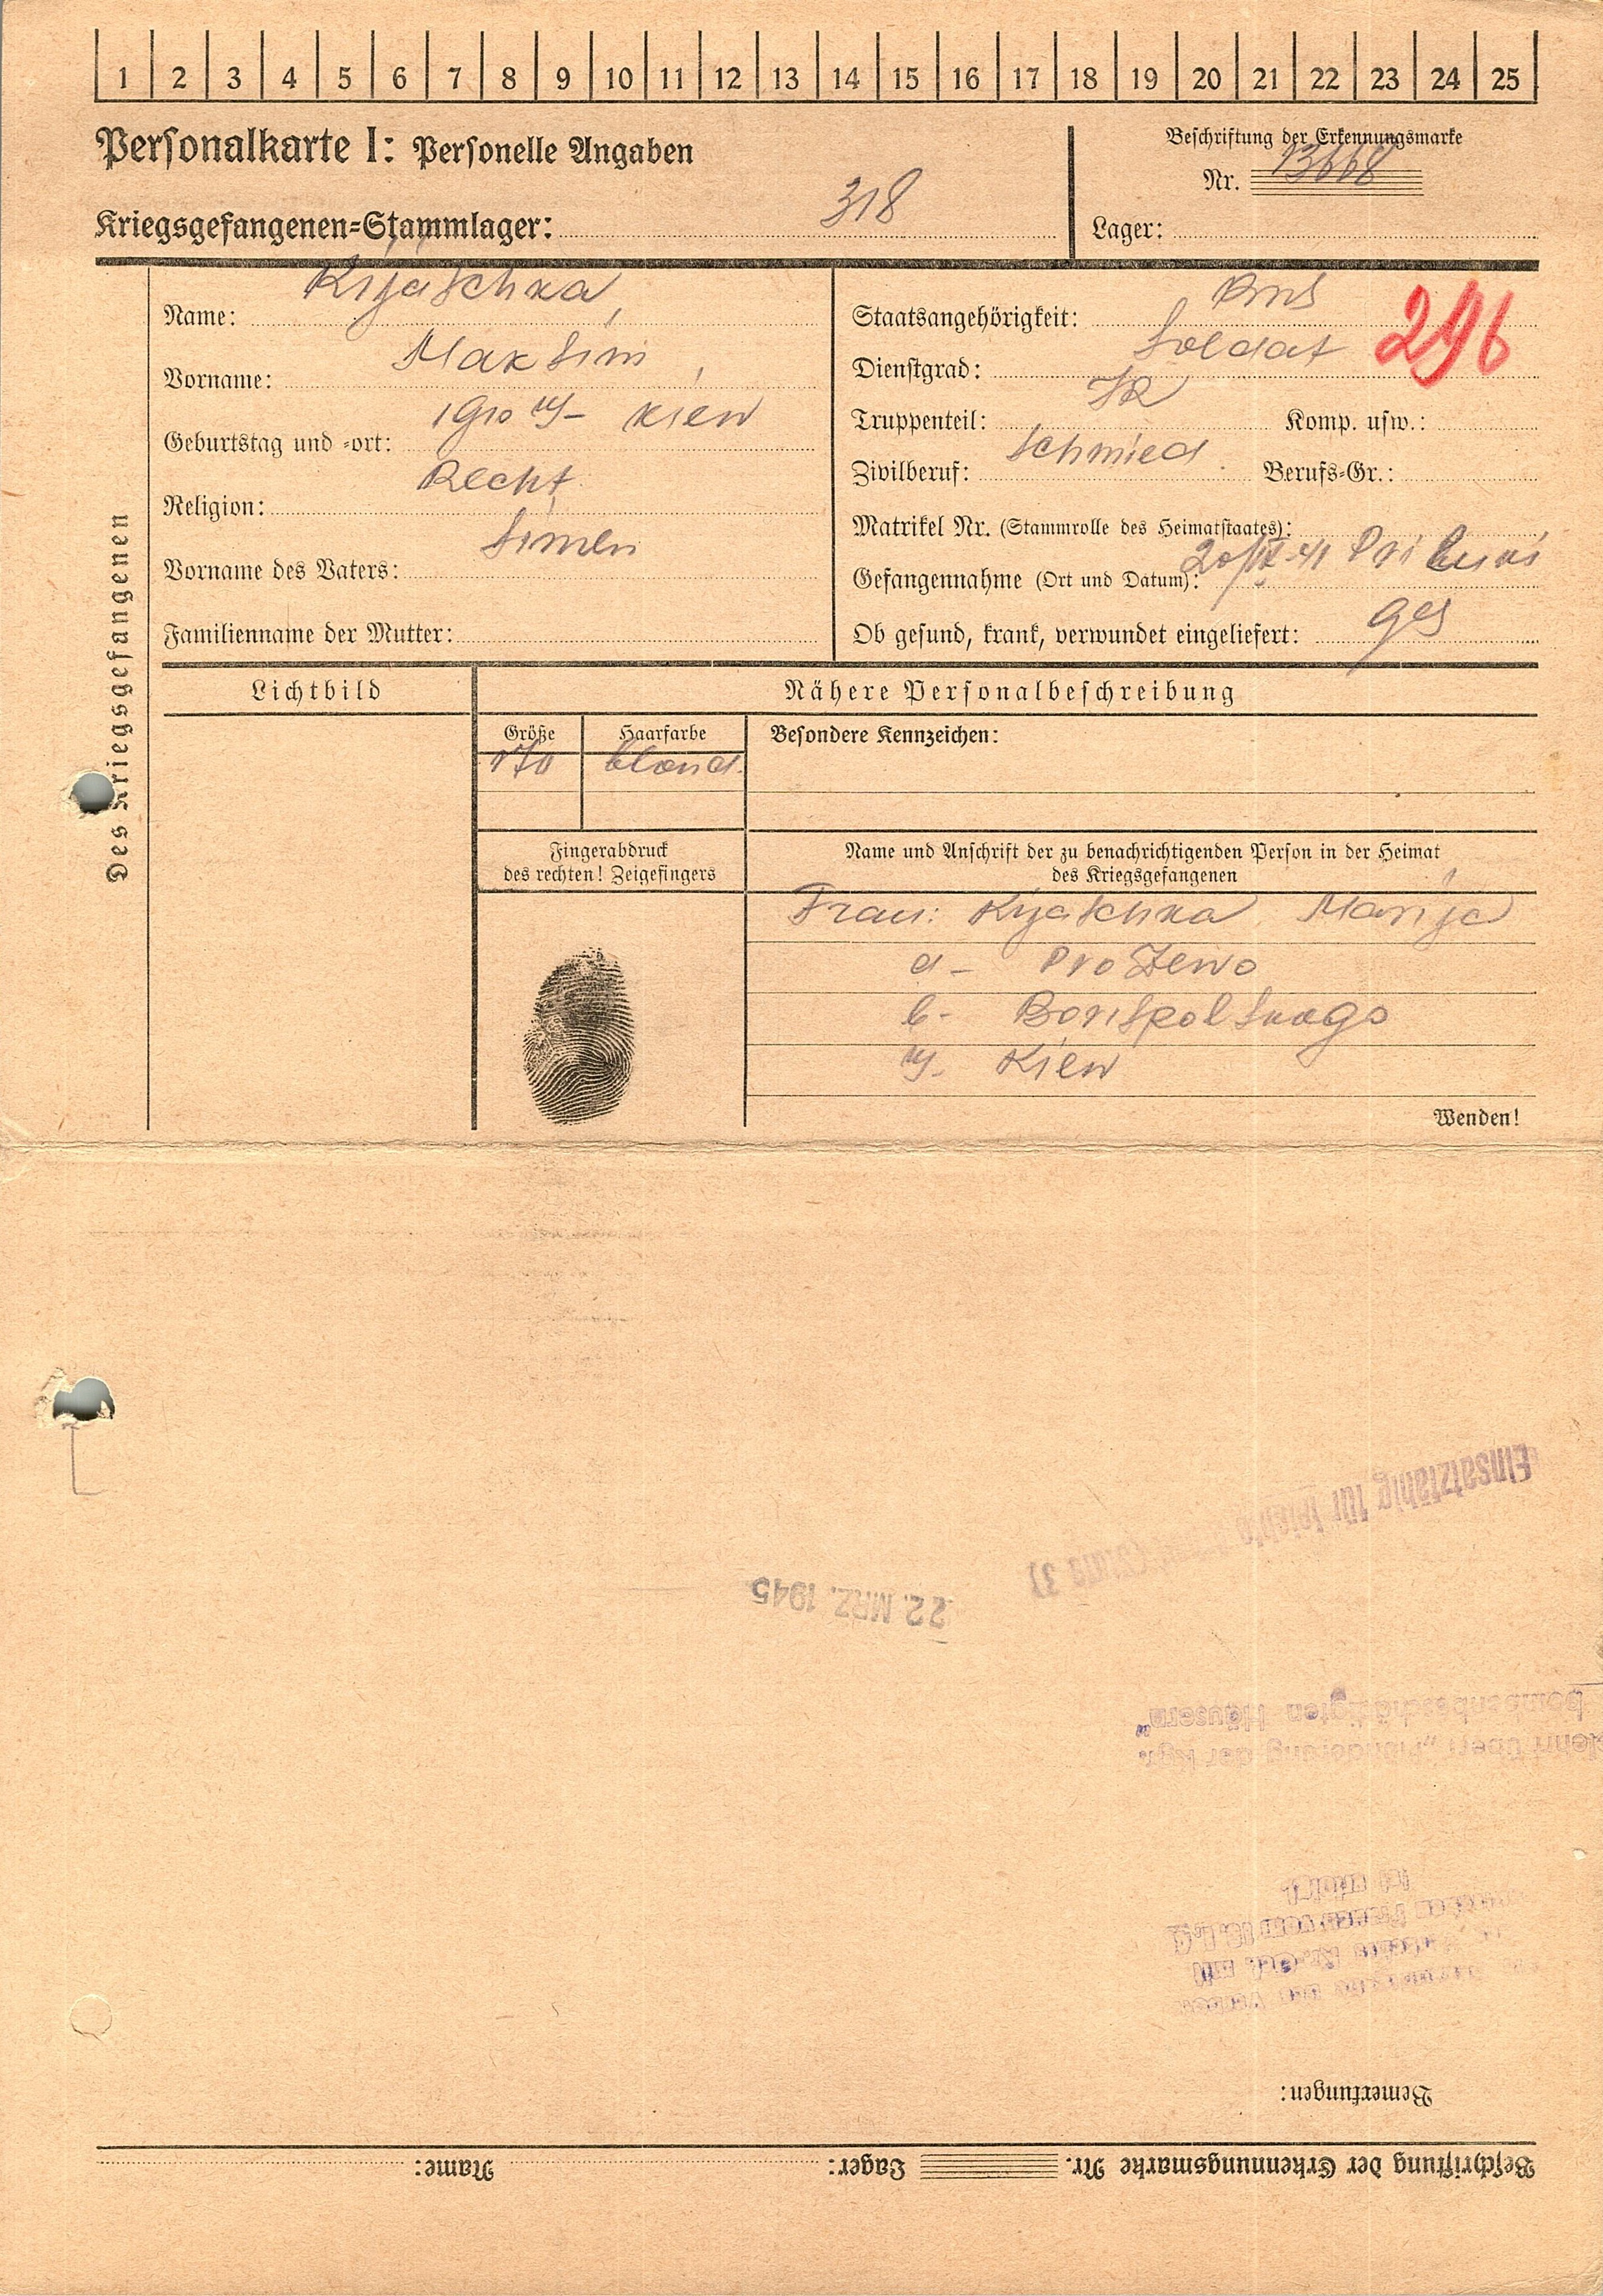 1 2 3 4 5 6 7 8 9 10 11 12 13 14 15 16 17 18 19 20 21 22 23 24 25
Personalkarte I: Personelle Angaben
Kriegsgefangenen-Stammlager: 318
Beschriftung der Erkennungsmarke
Nr. 13668
Lager:
Des Kriegsgefangenen
Name: Kijaschka
Vorname: Maksim
Geburtstag und -ort: 1910 Kiew
Religion: Recht
Vorname des Vaters: Simen
Familienname der Mutter:
Staatsangehörigkeit:
296
Dienstgrad: Soldat
Truppenteil: JR Komp. usw.:
Zivilberuf: Schmied Berufs-Gr.:
Matrikel Nr. (Stammrolle des Heimatstaates):
Gefangennahme (Ort und Datum):
Ob gesund, krank, verwundet eingeliefert: ges
Lichtbild
Nähere Personalbeschreibung
Größe Haarfarbe Besondere Kennzeichen:
170 blond
Fingerabdruck
des rechten! Zeigefingers
Name und Anschrift der zu benachrichtigenden Person in der Heimat
des Kriegsgefangenen
Frau: Kijaschka Marija
a- Prozewo
b- Borispolskago
Kiew
Wenden!
Einsatzfähig für leichte
22. MRZ. 1945
bombenbeschädigten Häusern"
über "Plünderung der Kgf.
Bemerkungen:
Beschriftung der Erkennungsmarke Nr. Lager: Name: